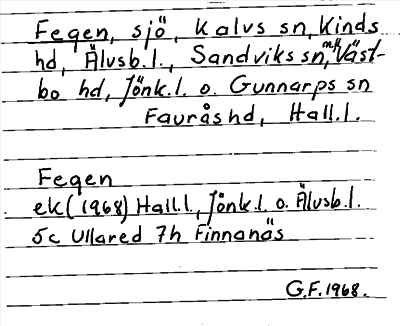 Fegen, sjö, Kalvs sn, Kinds
hd, Älvsb.l., Sandviks sn, Väst-
bo hd, Jönk.l. o. Gunnarps sn
Fauråshd, Hall.l.
Fegen
ek (1968) Hall.l., Jönk.l. o. Älvsb.l.
5c Ullared 7h Finnanäs
G.F. 1968.